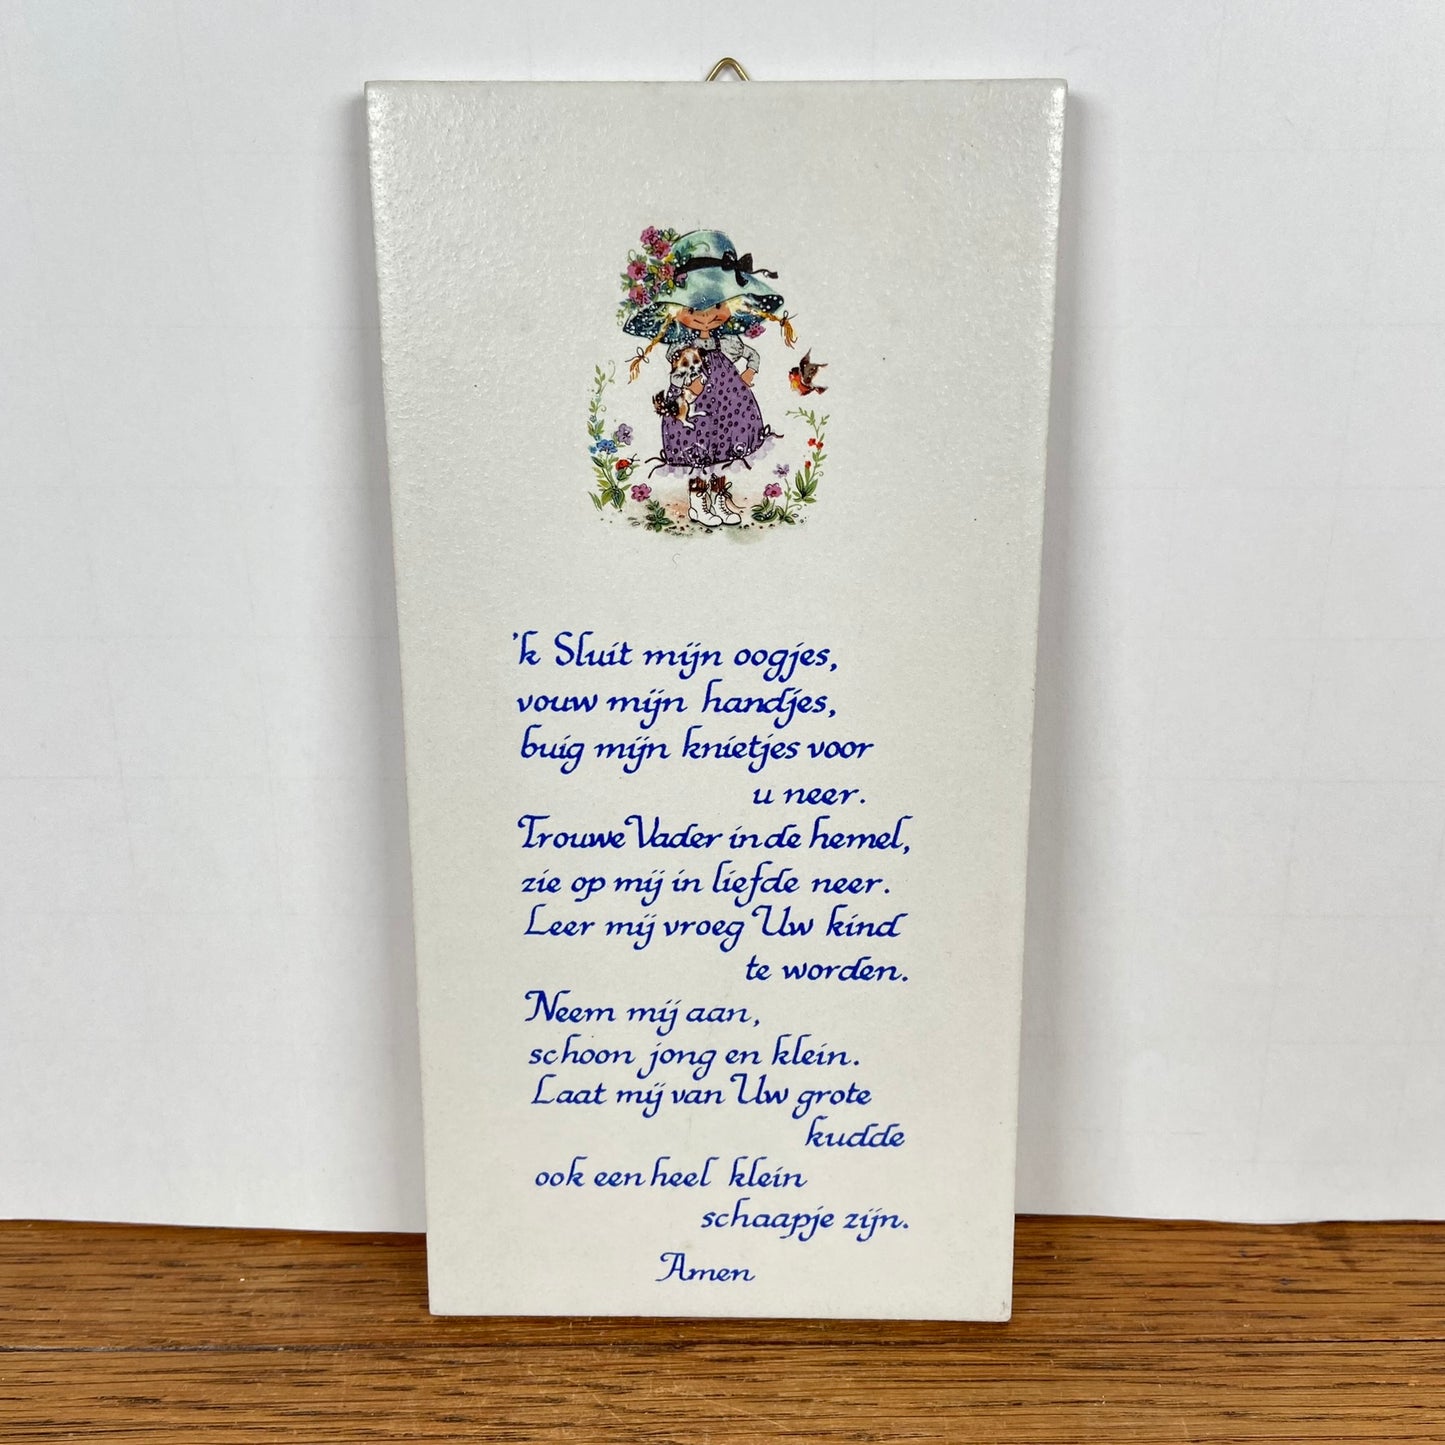 'k Sluit mijn oogjes,
vouw mijn handjes,
buig mijn knietjes voor
u neer.
Trouwe Vader in de hemel,
zie op mij in liefde neer.
Leer mij vroeg Uw kind
te worden.
Neem mij aan,
schoon jong en klein.
Laat mij van Uw grote
kudde
ook een heel klein
schaapje zijn.
Amen